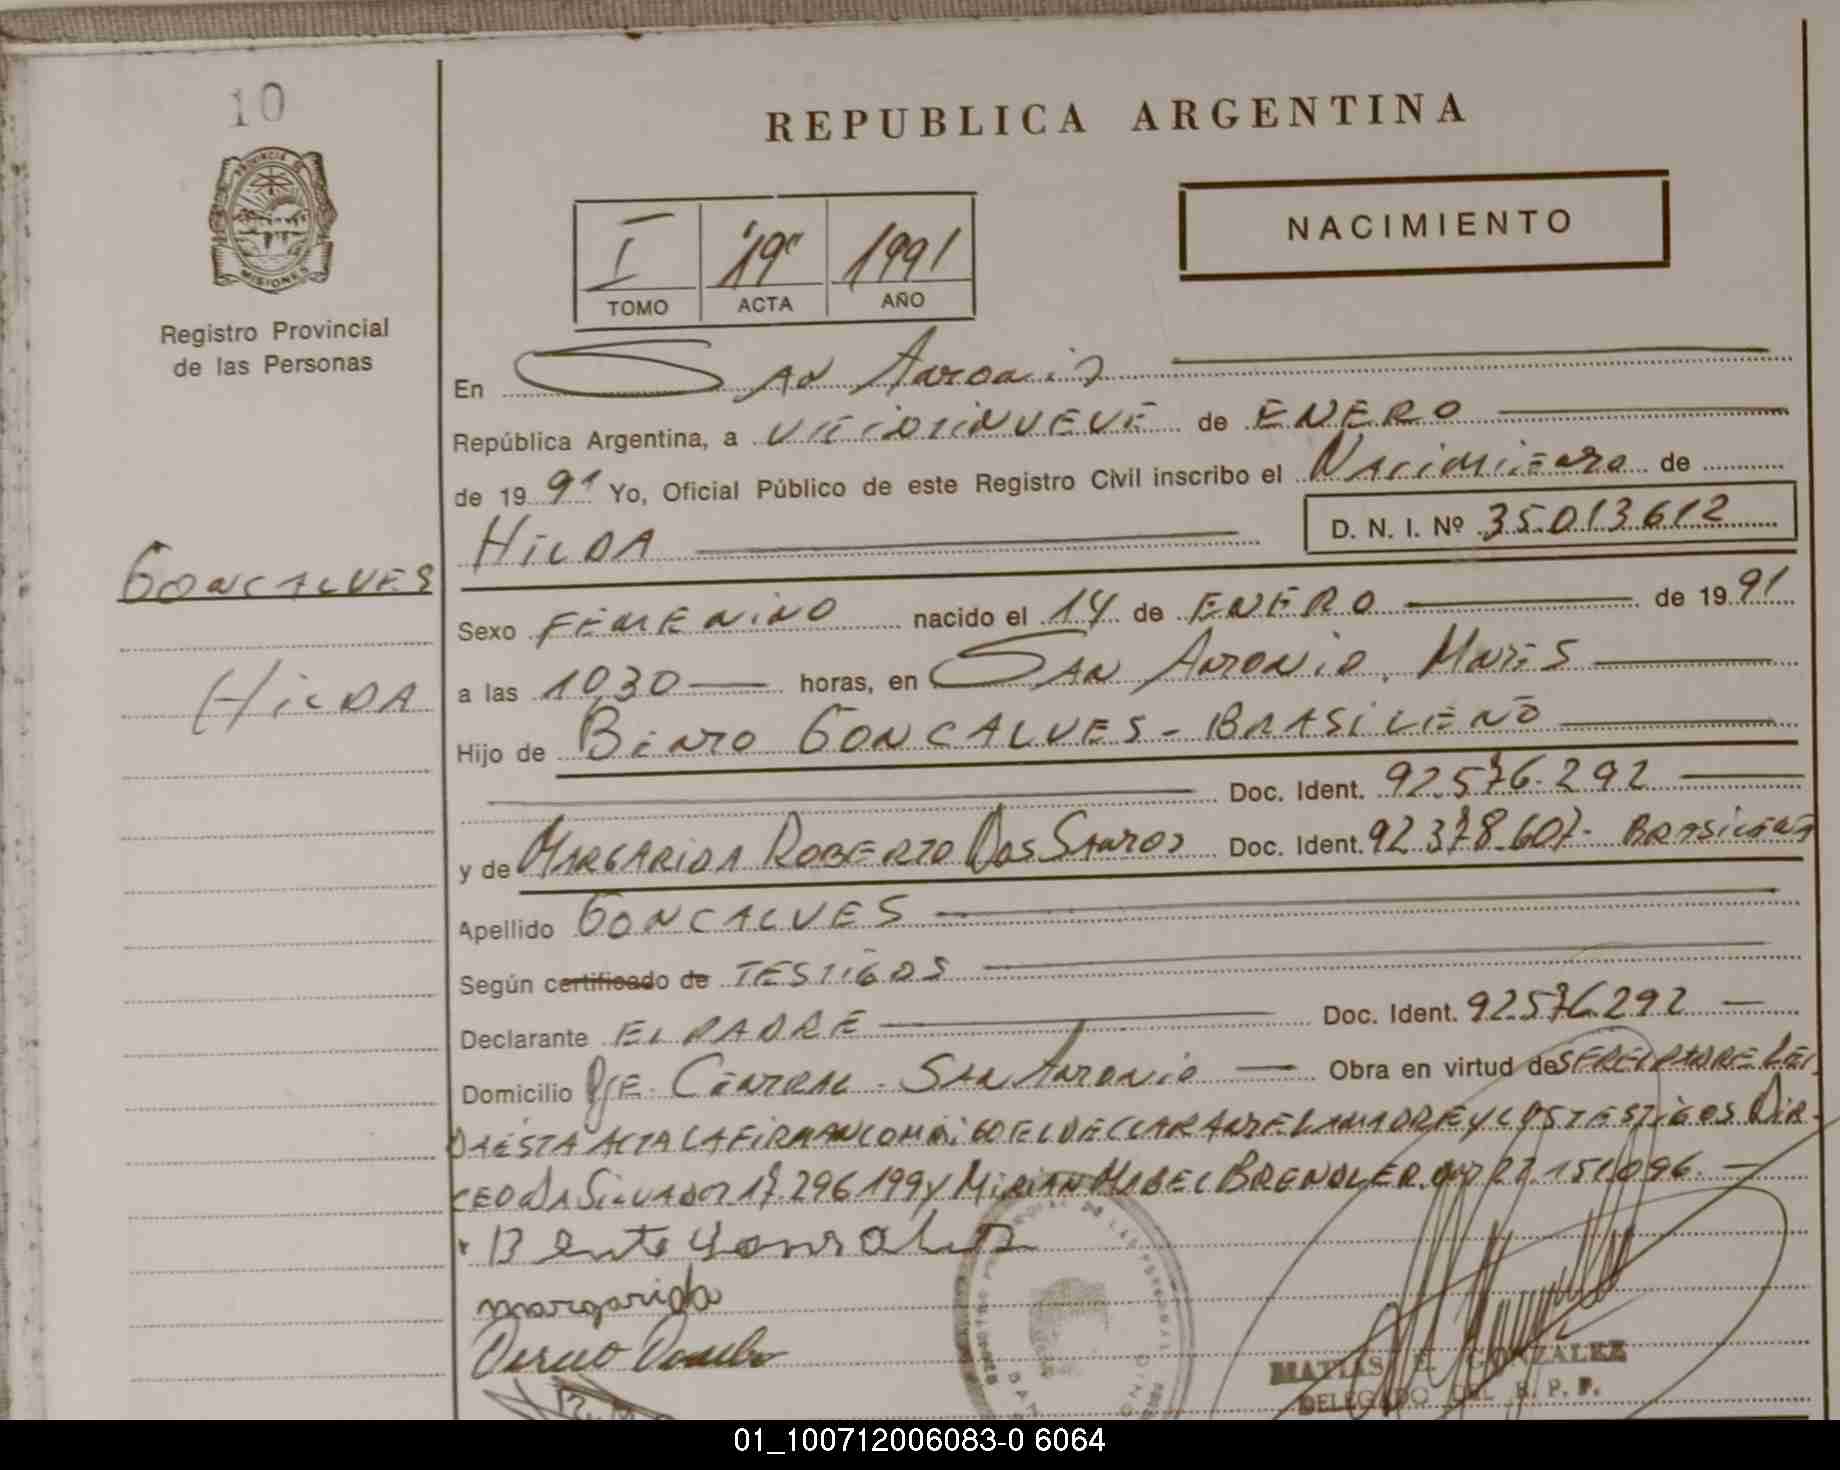 10
REPUBLICA ARGENTINA
PROVINCIA DE
MISIONES
Registro Provincial
de las Personas
NACIMIENTO
I "19" 1991
TOMO ACTA AÑO
En SAN Antonio
República Argentina, a VEIOTINUEVE de ENERO
de 19 91 Yo, Oficial Público de este Registro Civil inscribo el Nacimiento de
HILDA D. N. I. Nº 35.013.612
GONCALVES
HILDA
Sexo FEMENINO nacido el 14 de ENERO de 19 91
a las 10,30 horas, en SAN Antonio, Mnes
Hijo de Bento GONCALVES - BRASILEÑO
Doc. Ident. 92.576.292
y de MARGARIDA ROBERTO Dos Santos Doc. Ident. 92.378.607- BRASILEÑA
Apellido GONCALVES
Según certificado de TESTIGOS
Declarante EL PADRE Doc. Ident. 92.576.292
Domicilio Pje. Central - San Antonio Obra en virtud de SER EL PADRE LEI
DA ESTA ACTA LA FIRMAN CONMIGO EL DECLARANTE LA MADRE Y LOS TESTIGOS DIR-
CEO DA SILVA DNI 17.296.199 y MIRIAN MABEL BRENDLER DNI 22.151.096.
Bento Gonsalves
margarida
MATIAS E. GONZALEZ
DELEGADO DEL R. P. P.
01_100712006083-0 6064